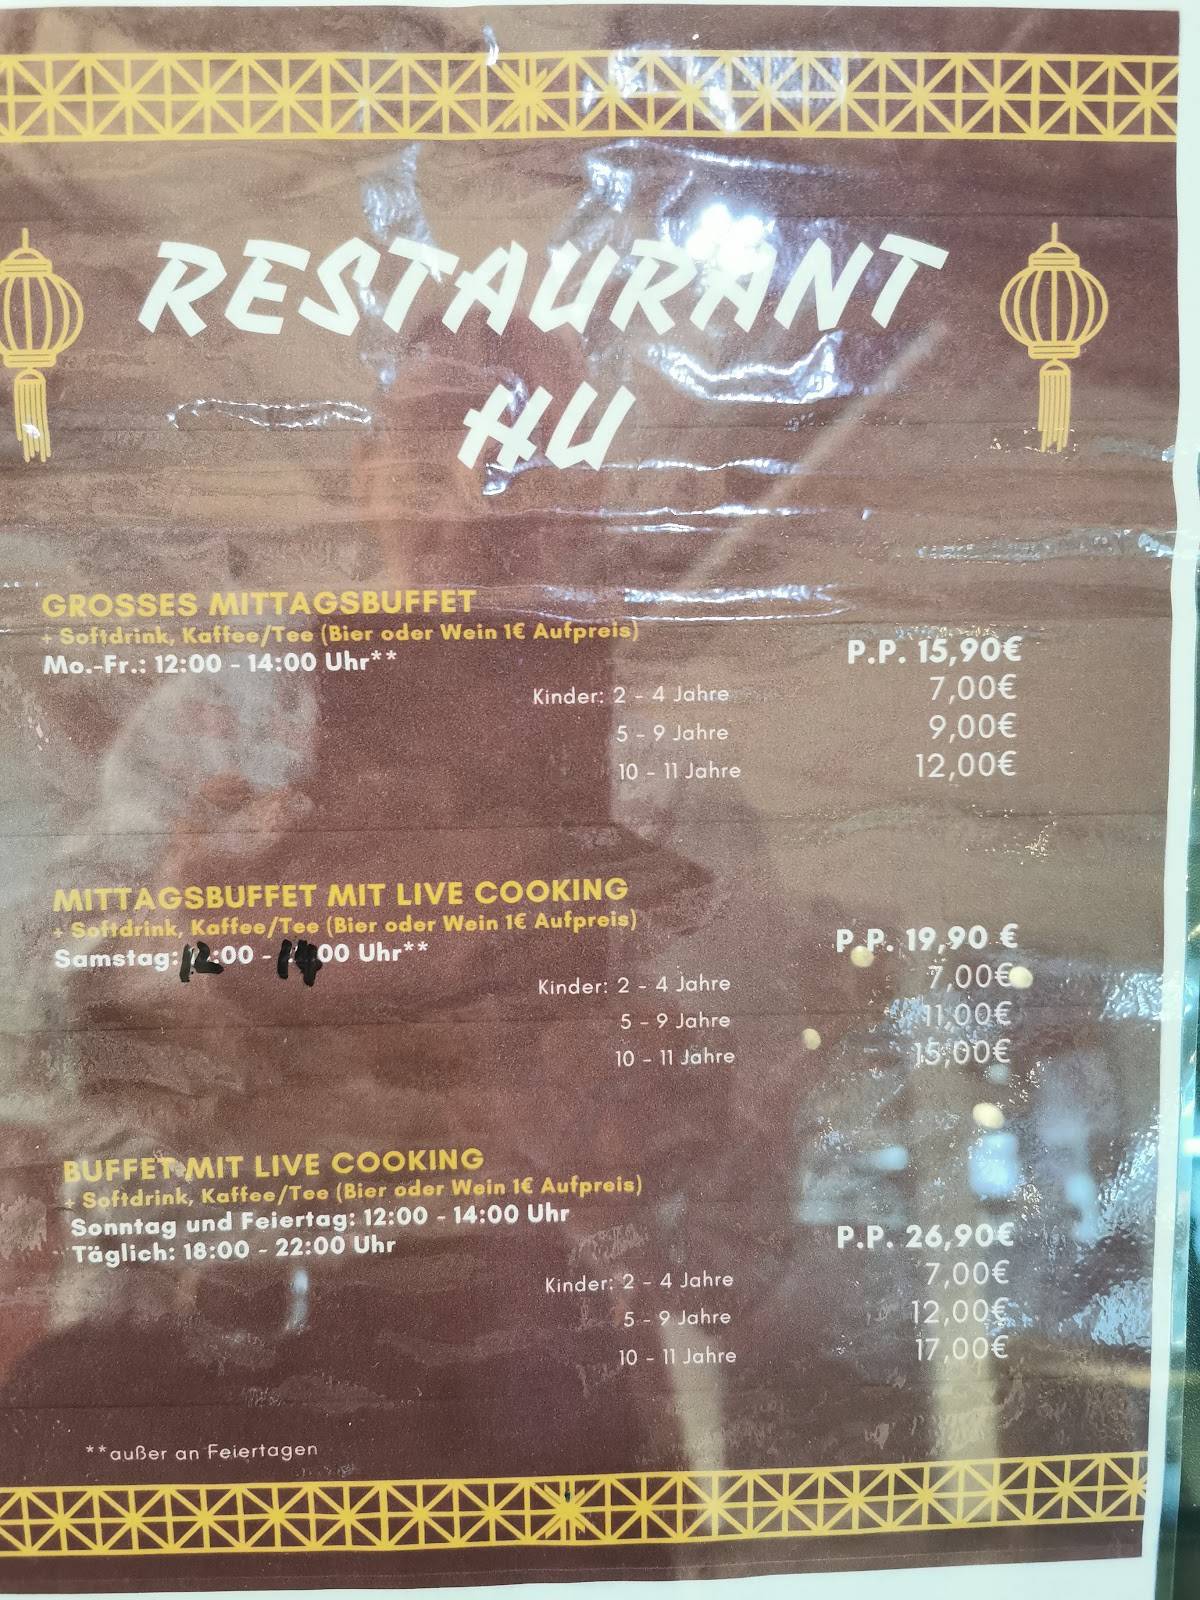 RESTAURANT
HU
GROSSES MITTAGSBUFFET
+ Softdrink, Kaffee/Tee (Bier oder Wein 1€ Aufpreis)
Mo.-Fr.: 12:00 - 14:00 Uhr** P.P. 15,90€
Kinder: 2 - 4 Jahre 7,00€
5 - 9 Jahre 9,00€
10 - 11 Jahre 12,00€
MITTAGSBUFFET MIT LIVE COOKING
+ Softdrink, Kaffee/Tee (Bier oder Wein 1€ Aufpreis)
Samstag: 12:00 - 14:00 Uhr** P.P. 19,90 €
Kinder: 2 - 4 Jahre 7,00€
5 - 9 Jahre 11,00€
10 - 11 Jahre 15,00€
BUFFET MIT LIVE COOKING
+ Softdrink, Kaffee/Tee (Bier oder Wein 1€ Aufpreis)
Sonntag und Feiertag: 12:00 - 14:00 Uhr
Täglich: 18:00 - 22:00 Uhr P.P. 26,90€
Kinder: 2 - 4 Jahre 7,00€
5 - 9 Jahre 12,00€
10 - 11 Jahre 17,00€
**außer an Feiertagen